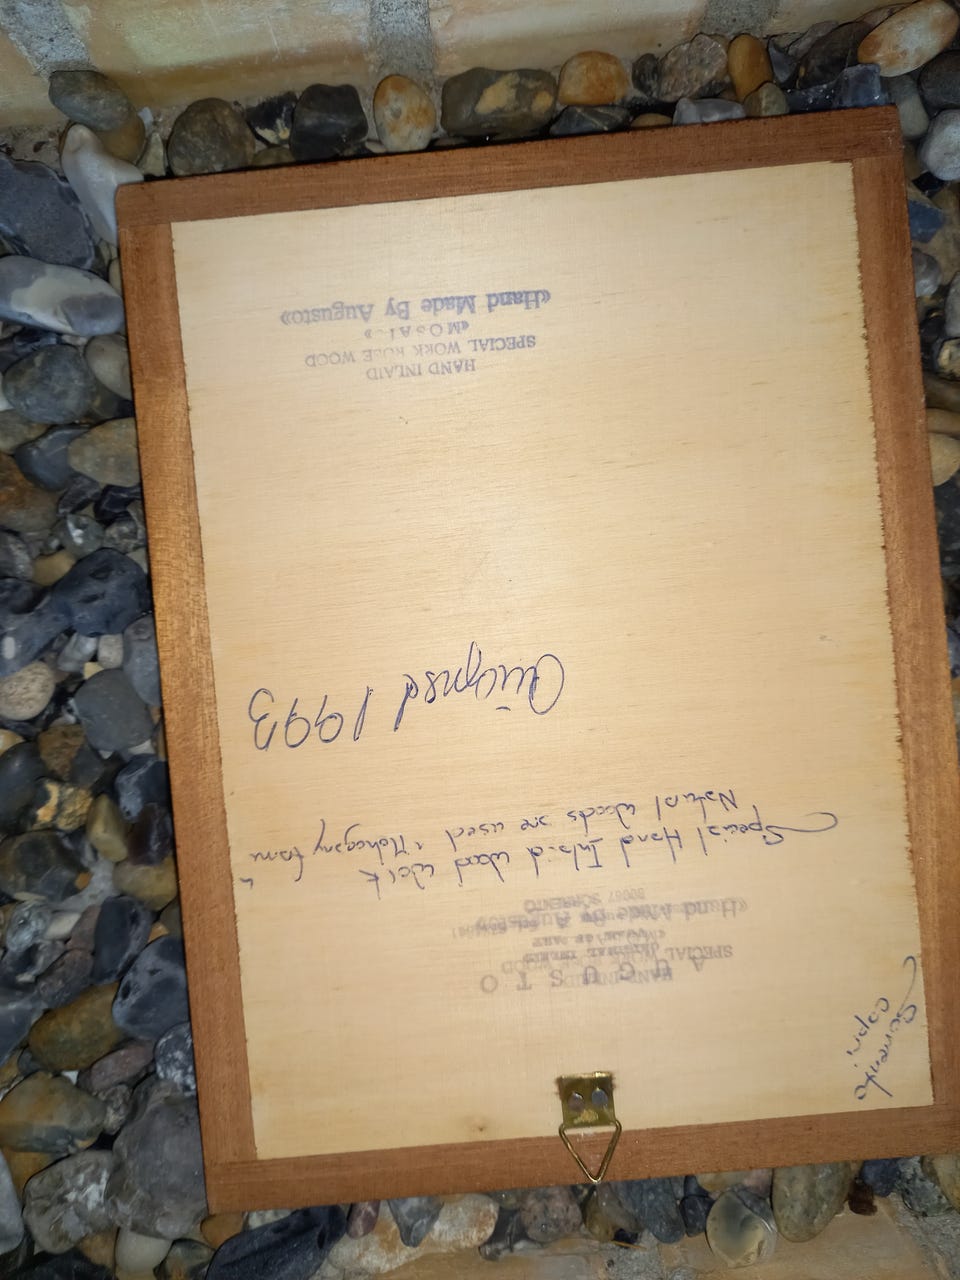 Sorrento
Capri
A U G U S T O
80067 SORRENTO
HAND INLAID
SPECIAL WORK
«Hand Made By Augusto»
Special Hand Inlaid Wood Work
Natural Woods are used "Mahogany frame"
1993
HAND INLAID
SPECIAL WORK ROSE WOOD
«Hand Made By Augusto»